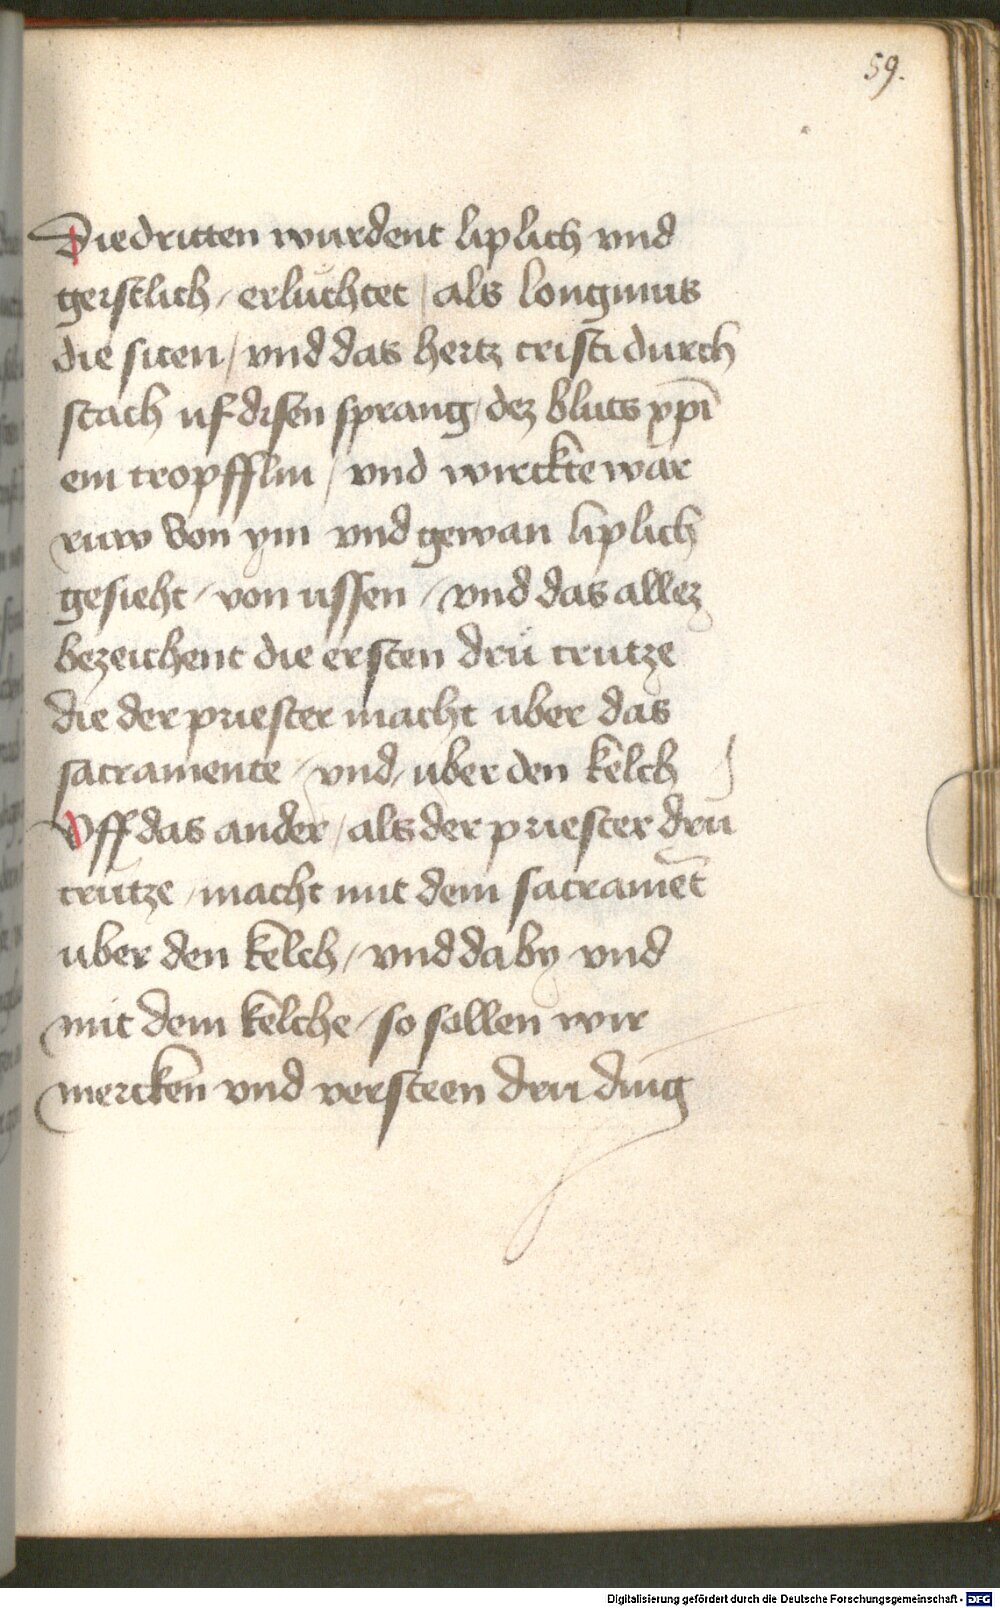 59.
Die dritten wurdent liplich vnd
geistlich / erluchtet / als longinus
die siten / vnd das hertz cristi durch
stach uf disen sprang / dez bluts xp̄i
ein tropfflin / vnd wirckte war
ruw von ym vnd gewan liplich
gesieht / von ussen / vnd das allez
bezeichent die ersten drü crutze
die der priester macht uber das
sacramente / vnd / uber den kelch
Vff das ander / als der priester drü
crutze / macht mit dem sacramēt
uber den kelch / vnd da by vnd
mit dem kelche / so sollen wir
mercken vnd versteen dru ding
Digitalisierung gefördert durch die Deutsche Forschungsgemeinschaft - DFG